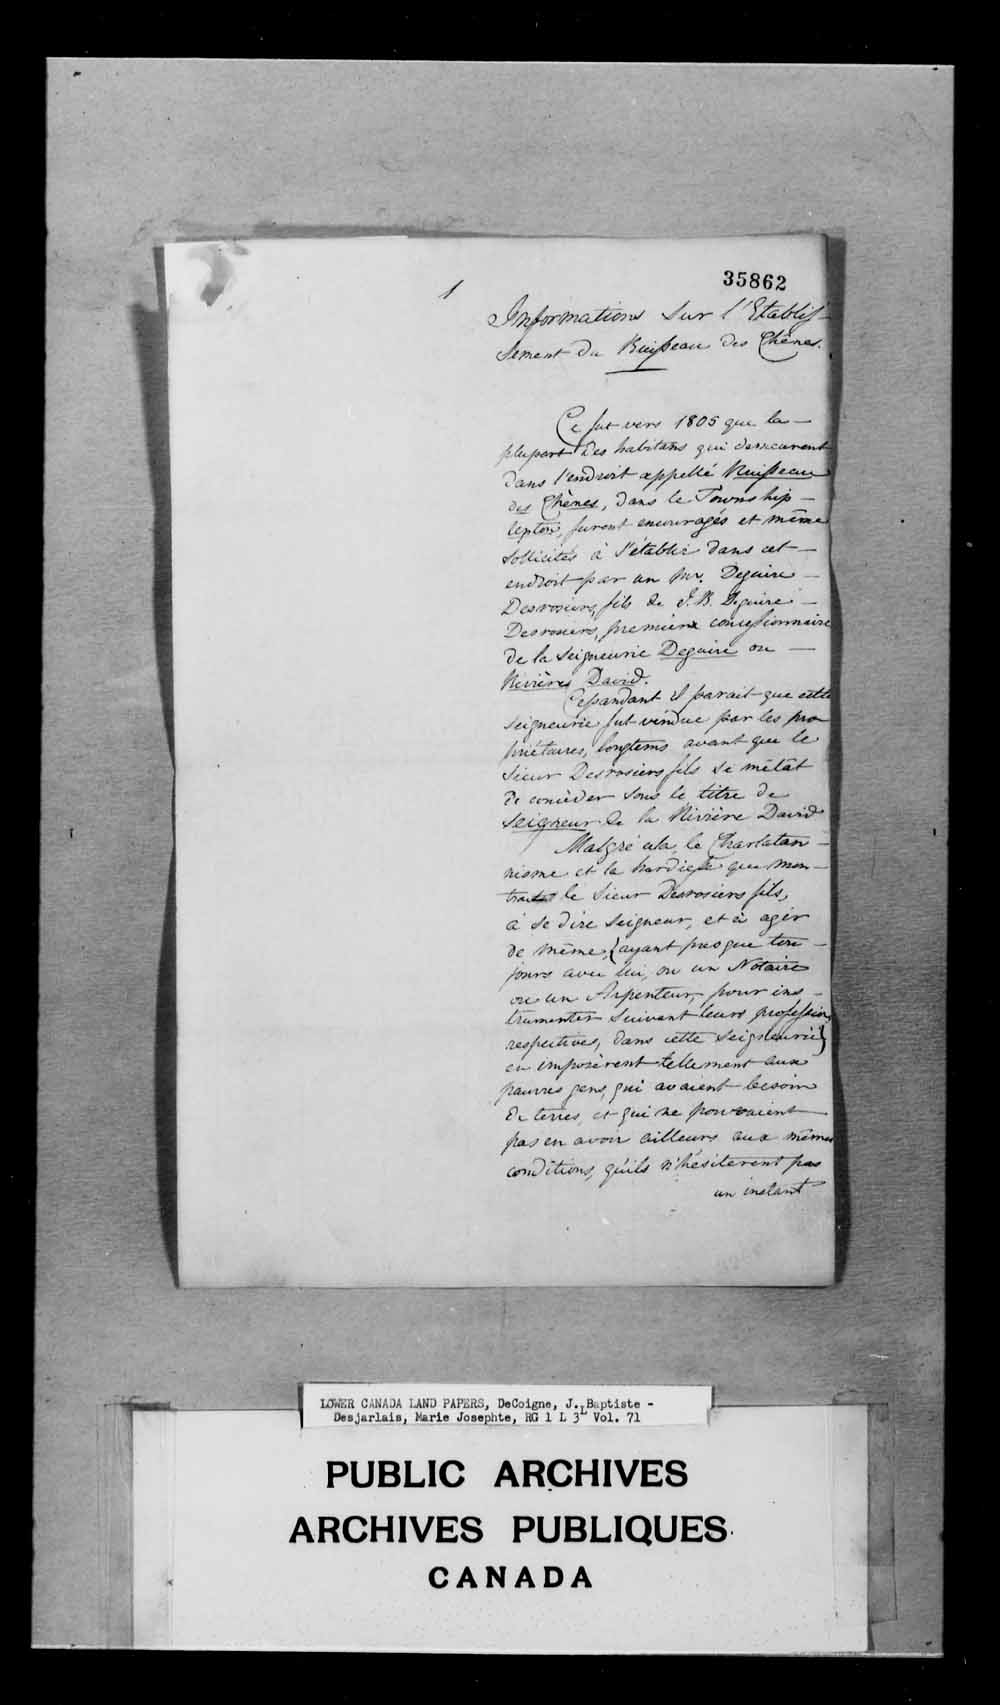 35862
1
Informations sur l'Etablis-
sement du Ruisseau des Chênes.
Ce fut vers 1805 que la —
plupart des habitans qui demeurent
dans l'endroit appellé Ruisseau
des Chênes, dans le Township —
Upton, furent encouragés et même
sollicités à s'établir dans cet —
endroit par un Mr. Deguire —
Desrosiers, fils de J. B. Deguire —
Desrosiers, premier concessionnaire
de la seigneurie Deguire ou —
Rivière David.
Cepandant il parait que cette
seigneurie fut vendue par les pro-
priétaires, longtems avant que le
Sieur Desrosiers fils se mêlât
de concéder sous le titre de
Seigneur de la Rivière David
Malgré cela, le Charlatan-
nisme et la hardiesse que mon-
trait le Sieur Desrosiers fils,
à se dire Seigneur, et à agir
de même, (ayant presque tou-
jours avec lui, ou un Notaire
ou un Arpenteur, pour ins-
trumenter suivant leurs professions
respectives, dans cette seigneurie)
en imposèrent tellement aux
pauvres gens, qui avaient besoin
de terres, et qui ne pouvaient
pas en avoir ailleurs aux mêmes
conditions, qu'ils n'hésiterent pas
un instant
LOWER CANADA LAND PAPERS, DeCoigne, J. Baptiste -
Desjarlais, Marie Josephte, RG 1 L 3L Vol. 71
PUBLIC ARCHIVES
ARCHIVES PUBLIQUES
CANADA